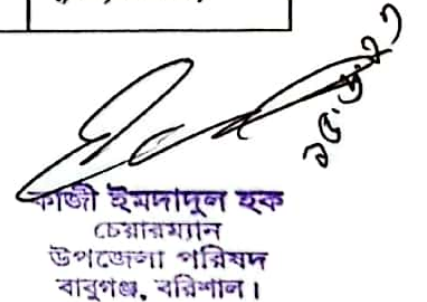 কাজী ইমদাদুল হক
চেয়ারম্যান
উপজেলা পরিষদ
বাবুগঞ্জ, বরিশাল।